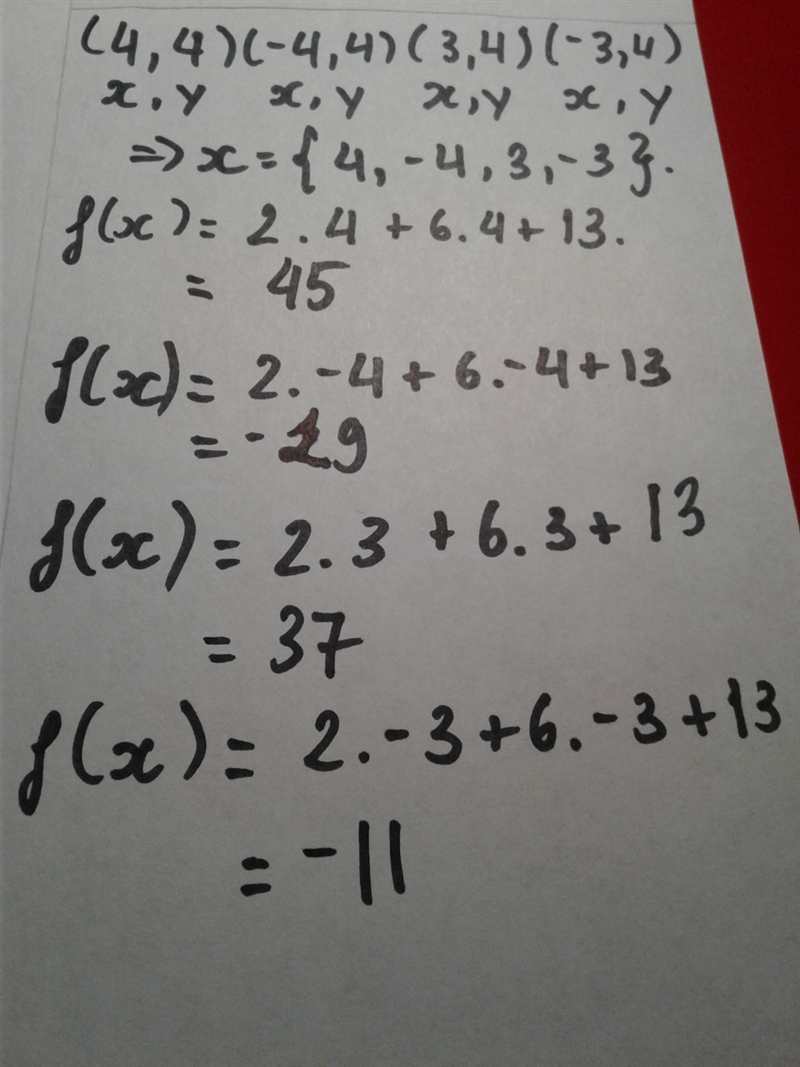 (4,4)(-4,4)(3,4)(-3,4)
x,y x,y x,y x,y
⇒x={4,-4,3,-3}.
f(x)= 2.4+6.4+13.
= 45
f(x)= 2.-4+6.-4+13
=-19
f(x)= 2.3+6.3+13
= 37
f(x)= 2.-3+6.-3+13
=-11